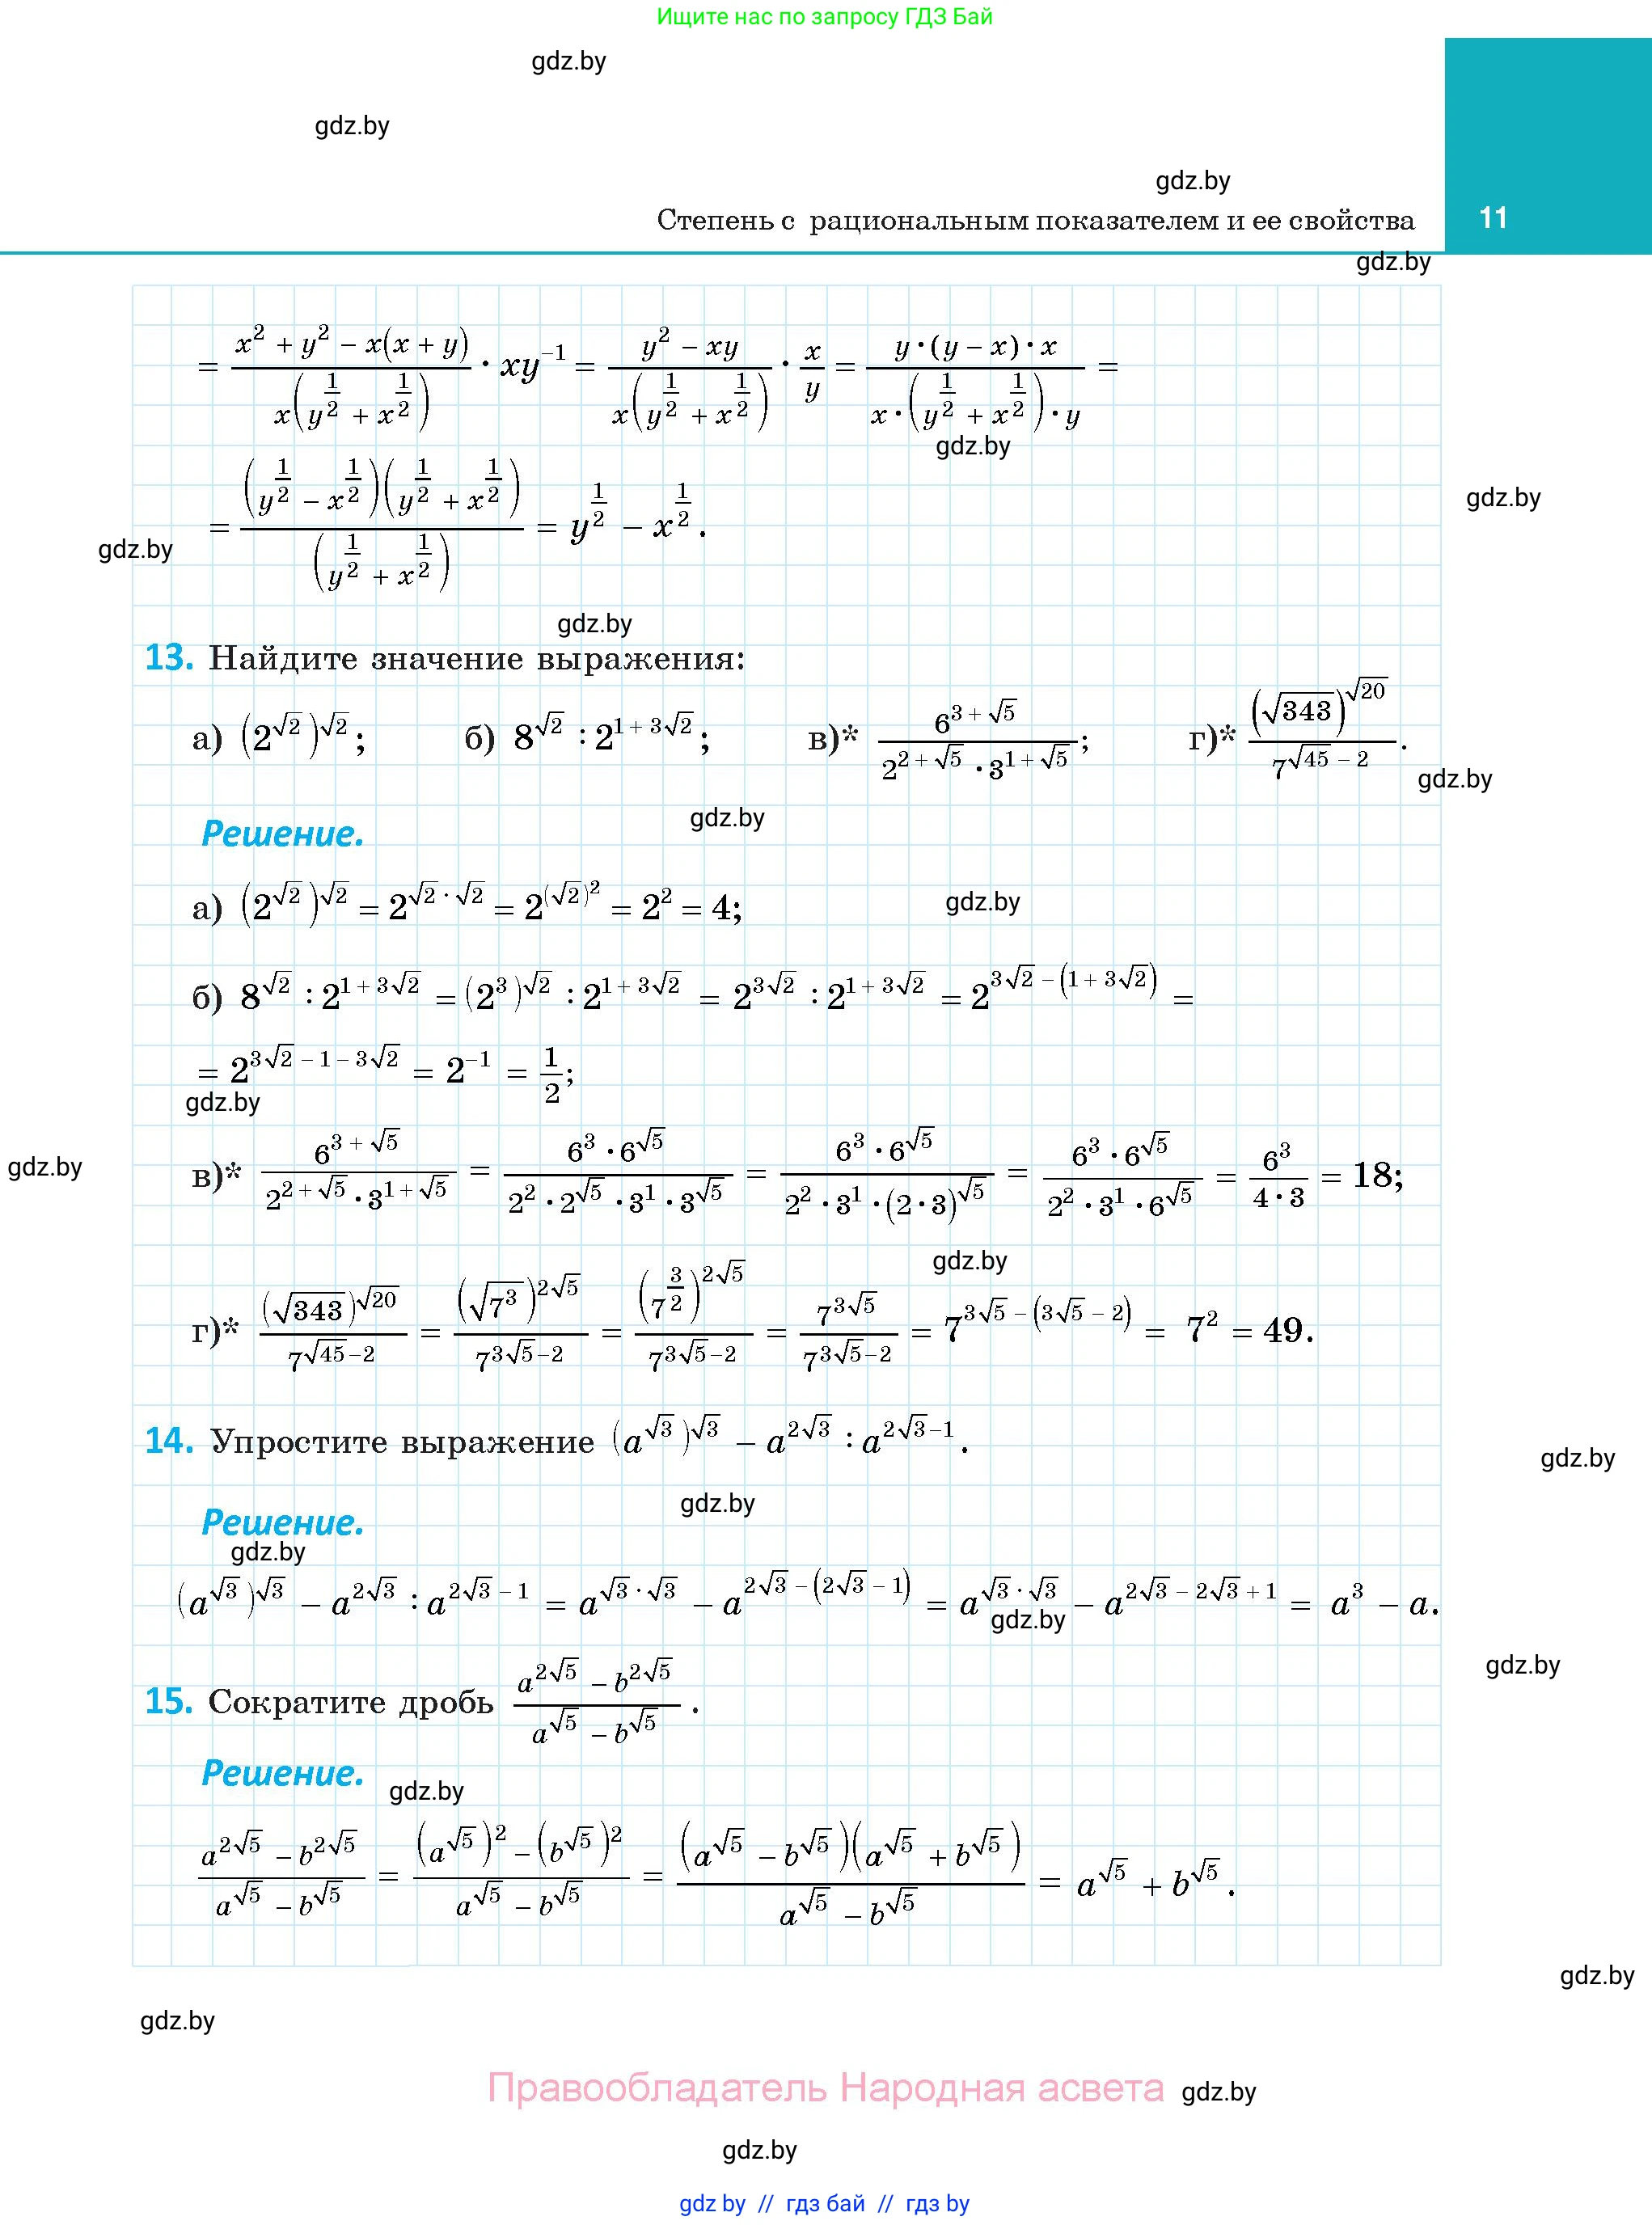 Ищите нас по запросу ГДЗ Бай
gdz.by
gdz.by
gdz.by
Степень с рациональным показателем и ее свойства 11
gdz.by
= \frac{x^2 + y^2 − x(x + y)}{x(y^{\frac{1}{2}} + x^{\frac{1}{2}})} · xy^{−1} = \frac{y^2 − xy}{x(y^{\frac{1}{2}} + x^{\frac{1}{2}})} · \frac{x}{y} = \frac{y·(y − x)·x}{x·(y^{\frac{1}{2}} + x^{\frac{1}{2}})·y} =
gdz.by
= \frac{(y^{\frac{1}{2}} − x^{\frac{1}{2}})(y^{\frac{1}{2}} + x^{\frac{1}{2}})}{(y^{\frac{1}{2}} + x^{\frac{1}{2}})} = y^{\frac{1}{2}} − x^{\frac{1}{2}}.
gdz.by
gdz.by
gdz.by
13. Найдите значение выражения:
а) (2^{√2})^{√2}; б) 8^{√2} : 2^{1 + 3√2}; в)* \frac{6^{3 + √5}}{2^{2 + √5} · 3^{1 + √5}}; г)* \frac{(√343)^{√20}}{7^{√45 − 2}}.
gdz.by
gdz.by
Решение.
а) (2^{√2})^{√2} = 2^{√2 · √2} = 2^{(√2)^2} = 2^2 = 4;
gdz.by
б) 8^{√2} : 2^{1 + 3√2} = (2^3)^{√2} : 2^{1 + 3√2} = 2^{3√2} : 2^{1 + 3√2} = 2^{3√2 − (1 + 3√2)} =
= 2^{3√2 − 1 − 3√2} = 2^{−1} = \frac{1}{2};
gdz.by
gdz.by
в)* \frac{6^{3 + √5}}{2^{2 + √5} · 3^{1 + √5}} = \frac{6^3 · 6^{√5}}{2^2 · 2^{√5} · 3^1 · 3^{√5}} = \frac{6^3 · 6^{√5}}{2^2 · 3^1 · (2 · 3)^{√5}} = \frac{6^3 · 6^{√5}}{2^2 · 3^1 · 6^{√5}} = \frac{6^3}{4 · 3} = 18;
gdz.by
г)* \frac{(√343)^{√20}}{7^{√45 − 2}} = \frac{(√7^3)^{2√5}}{7^{3√5 − 2}} = \frac{(7^{\frac{3}{2}})^{2√5}}{7^{3√5 − 2}} = \frac{7^{3√5}}{7^{3√5 − 2}} = 7^{3√5 − (3√5 − 2)} = 7^2 = 49.
14. Упростите выражение (a^{√3})^{√3} − a^{2√3} : a^{2√3 − 1}.
gdz.by
gdz.by
Решение.
gdz.by
(a^{√3})^{√3} − a^{2√3} : a^{2√3 − 1} = a^{√3 · √3} − a^{2√3 − (2√3 − 1)} = a^{√3 · √3} − a^{2√3 − 2√3 + 1} = a^3 − a.
gdz.by
gdz.by
15. Сократите дробь \frac{a^{2√5} − b^{2√5}}{a^{√5} − b^{√5}}.
Решение.
gdz.by
\frac{a^{2√5} − b^{2√5}}{a^{√5} − b^{√5}} = \frac{(a^{√5})^2 − (b^{√5})^2}{a^{√5} − b^{√5}} = \frac{(a^{√5} − b^{√5})(a^{√5} + b^{√5})}{a^{√5} − b^{√5}} = a^{√5} + b^{√5}.
gdz.by
gdz.by
Правообладатель Народная асвета
gdz.by
gdz.by
gdz by // гдз бай // гдз by